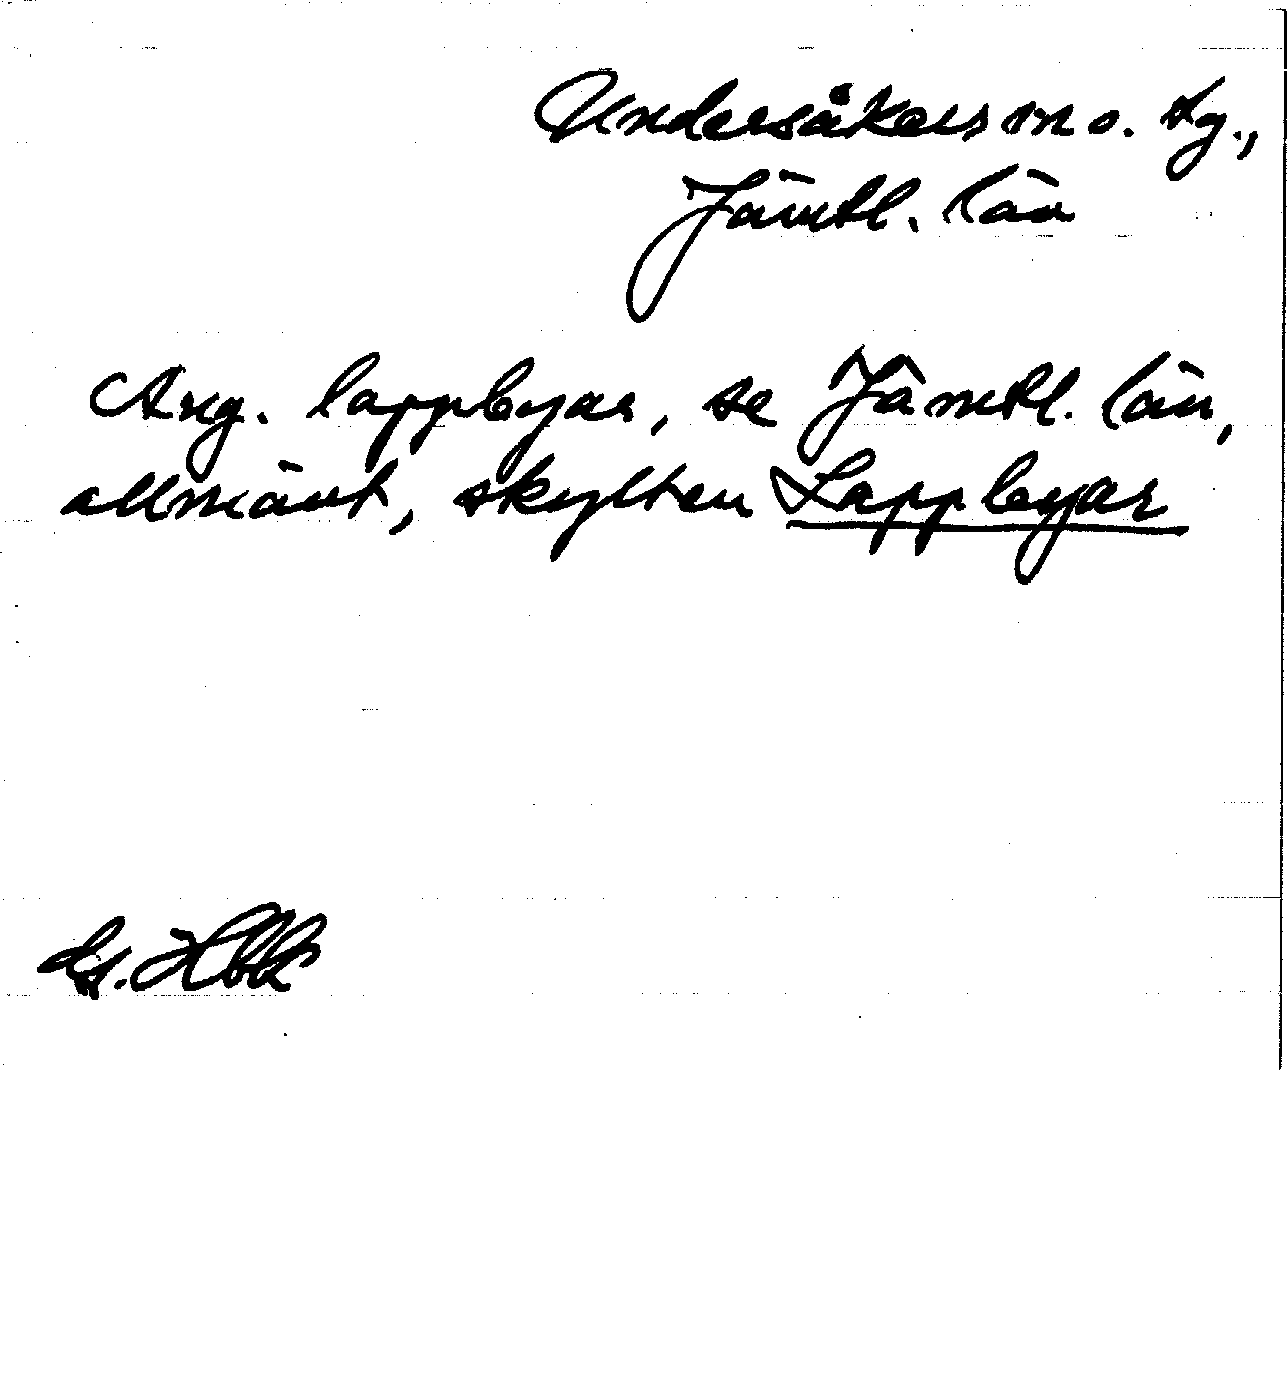 Undersåkers sn o. tg.,
Jämtl. län
Ang. lappbyar, se Jämtl. län,
allmänt, skylten Lappbyar